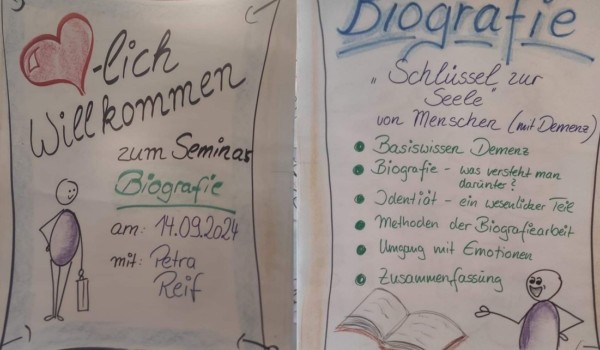 -lich
Willkommen
zum Seminar
Biografie
am: 14.09.2024
mit: Petra
Reif
Biografie
"Schlüssel zur
Seele"
von Menschen (mit Demenz)
Basiswissen Demenz
Biografie - was versteht man
darunter?
Identität - ein wesentlicher Teil
Methoden der Biografiearbeit
Umgang mit Emotionen
Zusammenfassung